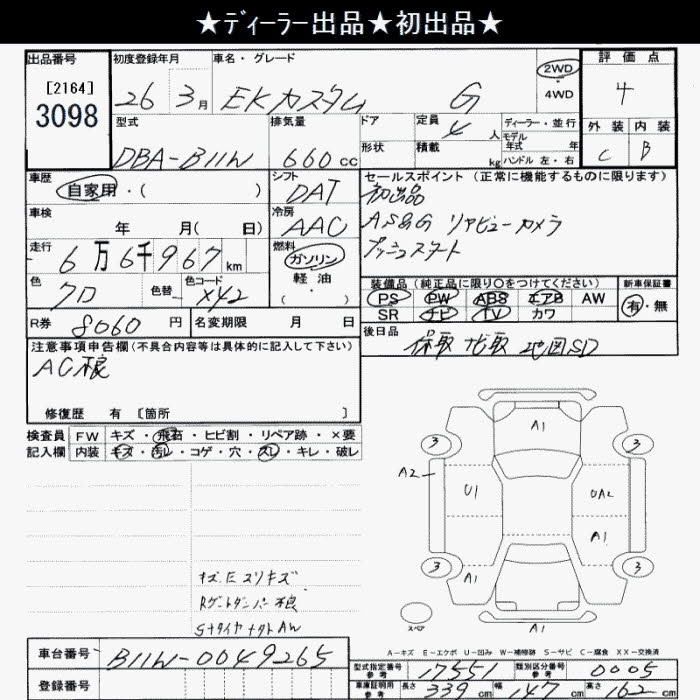 ★ディーラー出品★初出品★
出品番号 初度登録年月 車名・グレード 評価点
[2164]
3098
26 3月 EKカスタム G 2WD・4WD 4
外装 内装
C B
型式 排気量 ドア 定員 ディーラー・並行
DBA-B11W 660cc 4人 モデル年式 年
形状 積載 kg ハンドル 左・右
車歴 自家用・( ) シフト DAT
セールスポイント(正常に機能するものに限ります)
初出品
AS&G リヤビューカメラ
プッシュスタート
車検 年 月( 日) 冷房 AAC
走行 6万6千967km 燃料 ガソリン
軽油
( ・ )
色 クロ 色替 色コード X42
装備品(純正品に限り○をつけてください) 新車保証書
PS PW ABS エアB AW 有・無
SR ナビ TV カワ
R券 8060円 名変期限 月 日
後日品 保取 ナビ取 地図SD
注意事項申告欄(不具合内容等は具体的に記入して下さい)
AC根
修復歴 有 [箇所 ]
検査員記入欄 FW キズ・飛石・ヒビ割・リペア跡・×要
内装 キズ・汚レ・コゲ・穴・スレ・キレ・破レ
A1
3 3
A2
U1 UA2
A1
3 3
A1
A1
スペア
A=キズ E=エクボ U=凹み W=補修跡 S=サビ C=腐食 XX=交換済
車台番号 B11W-0049265
登録番号
型式指定番号 参考 17551 類別区分番号 参考 0005
車庫証明用 参考 長さ 339cm 幅 147cm 高さ 162cm